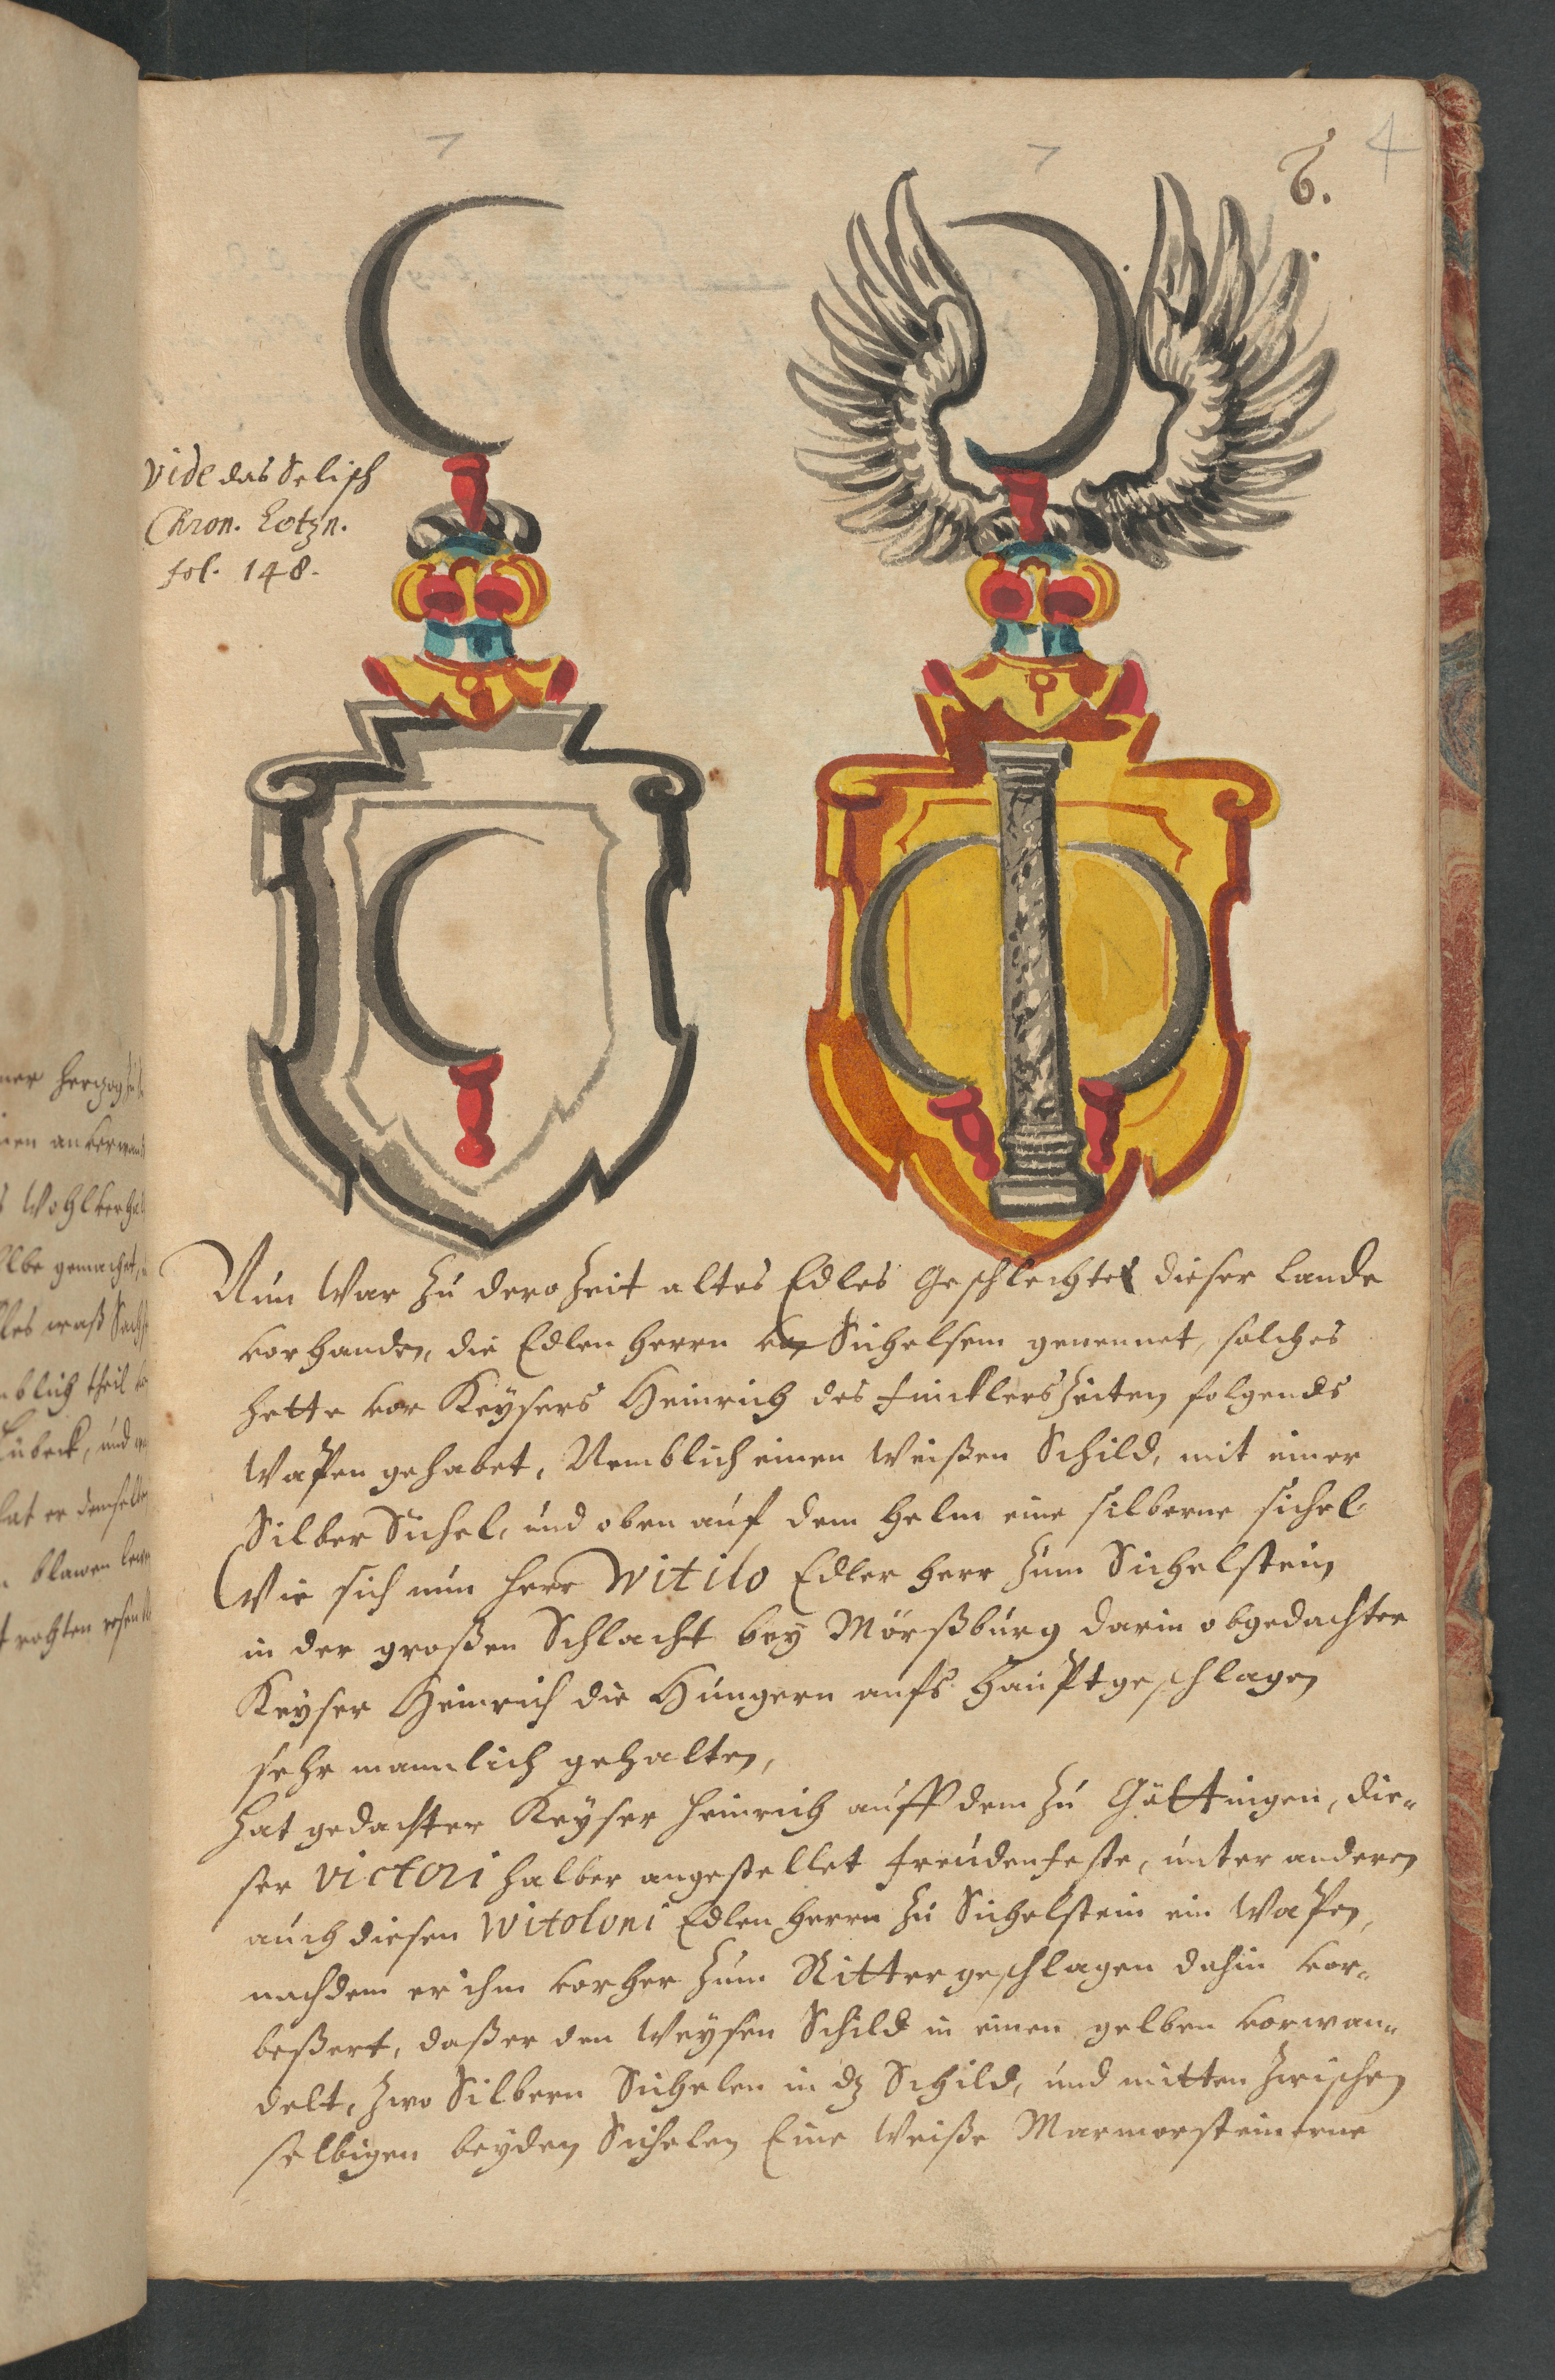 4
6.
vide das Selisch
Chron. Letzn.
fol. 148.
Nun war zu dero Zeit altes Edles Geschlechtes dieser Lande
vorhanden, die Edlen Herrn von Sichelsem genennet, solches
hette vor Keysers Heinrich des Fincklers Zeiten folgendes
Wapen gehabet, Nemblich einen Weißen Schild, mit einer
Silber Sichel, und oben auf dem Helm eine silberne sichel.
Wie sich nun Herr Witilo Edler Herr zum Sichelstein
in der großen Schlacht bey Mörßburg darin obgedachter
Keyser Heinrich die Hungern aufs Haupt geschlagen
sehr mannlich gehalten,
Hat gedachter Keyser Heinrich auff dem zu Göttingen, die-
ser victori halber angestellet Freudenfeste, unter anderen
auch diesen Witoloni Edlen Herrn zu Sichelstein ein Wapen,
nachdem er ihm vorher zum Ritter geschlagen dahin vor-
beßert, daß er den Weysen Schild in einen gelben vorwan-
delt, zwo Silbern Sichelen in dz Schild, und mitten zwischen
selbigen beyden Sichelen Eine Weiße Marmorsteinerne